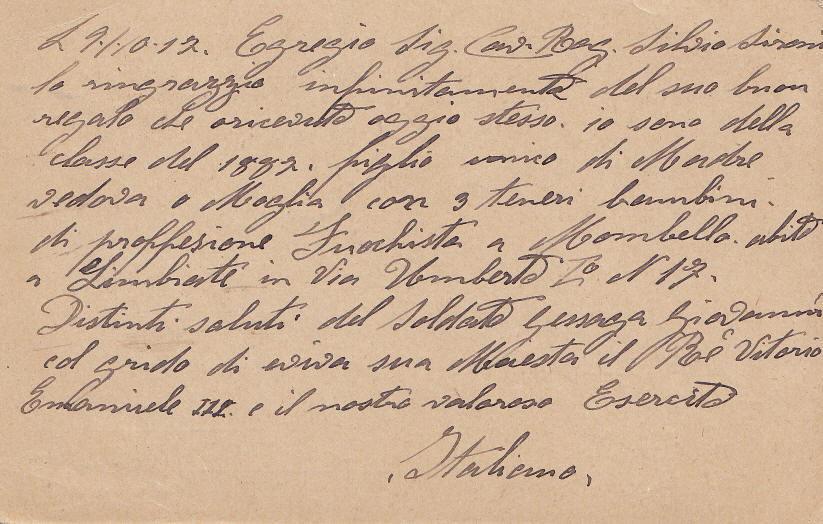 L 9.10.12. Egregio Sig. Cav. Rag. Silvio Sironi
lo ringrazzio infinitamente del suo buon
regalo che oricevuto oggio stesso. io sono della
classe del 1882. figlio unico di Madre
vedova o Moglia con 3 teneri bambini.
di proffesione Fuochista a Mombello. abito
a Limbiate in Via Umberto Iº. N 17.
Distinti saluti del Soldato Gessaga Giovanni
col grido di eviva sua Maesta il Ré Vitorio
Emanuele III. e il nostro valoroso Esercito
Italiano.